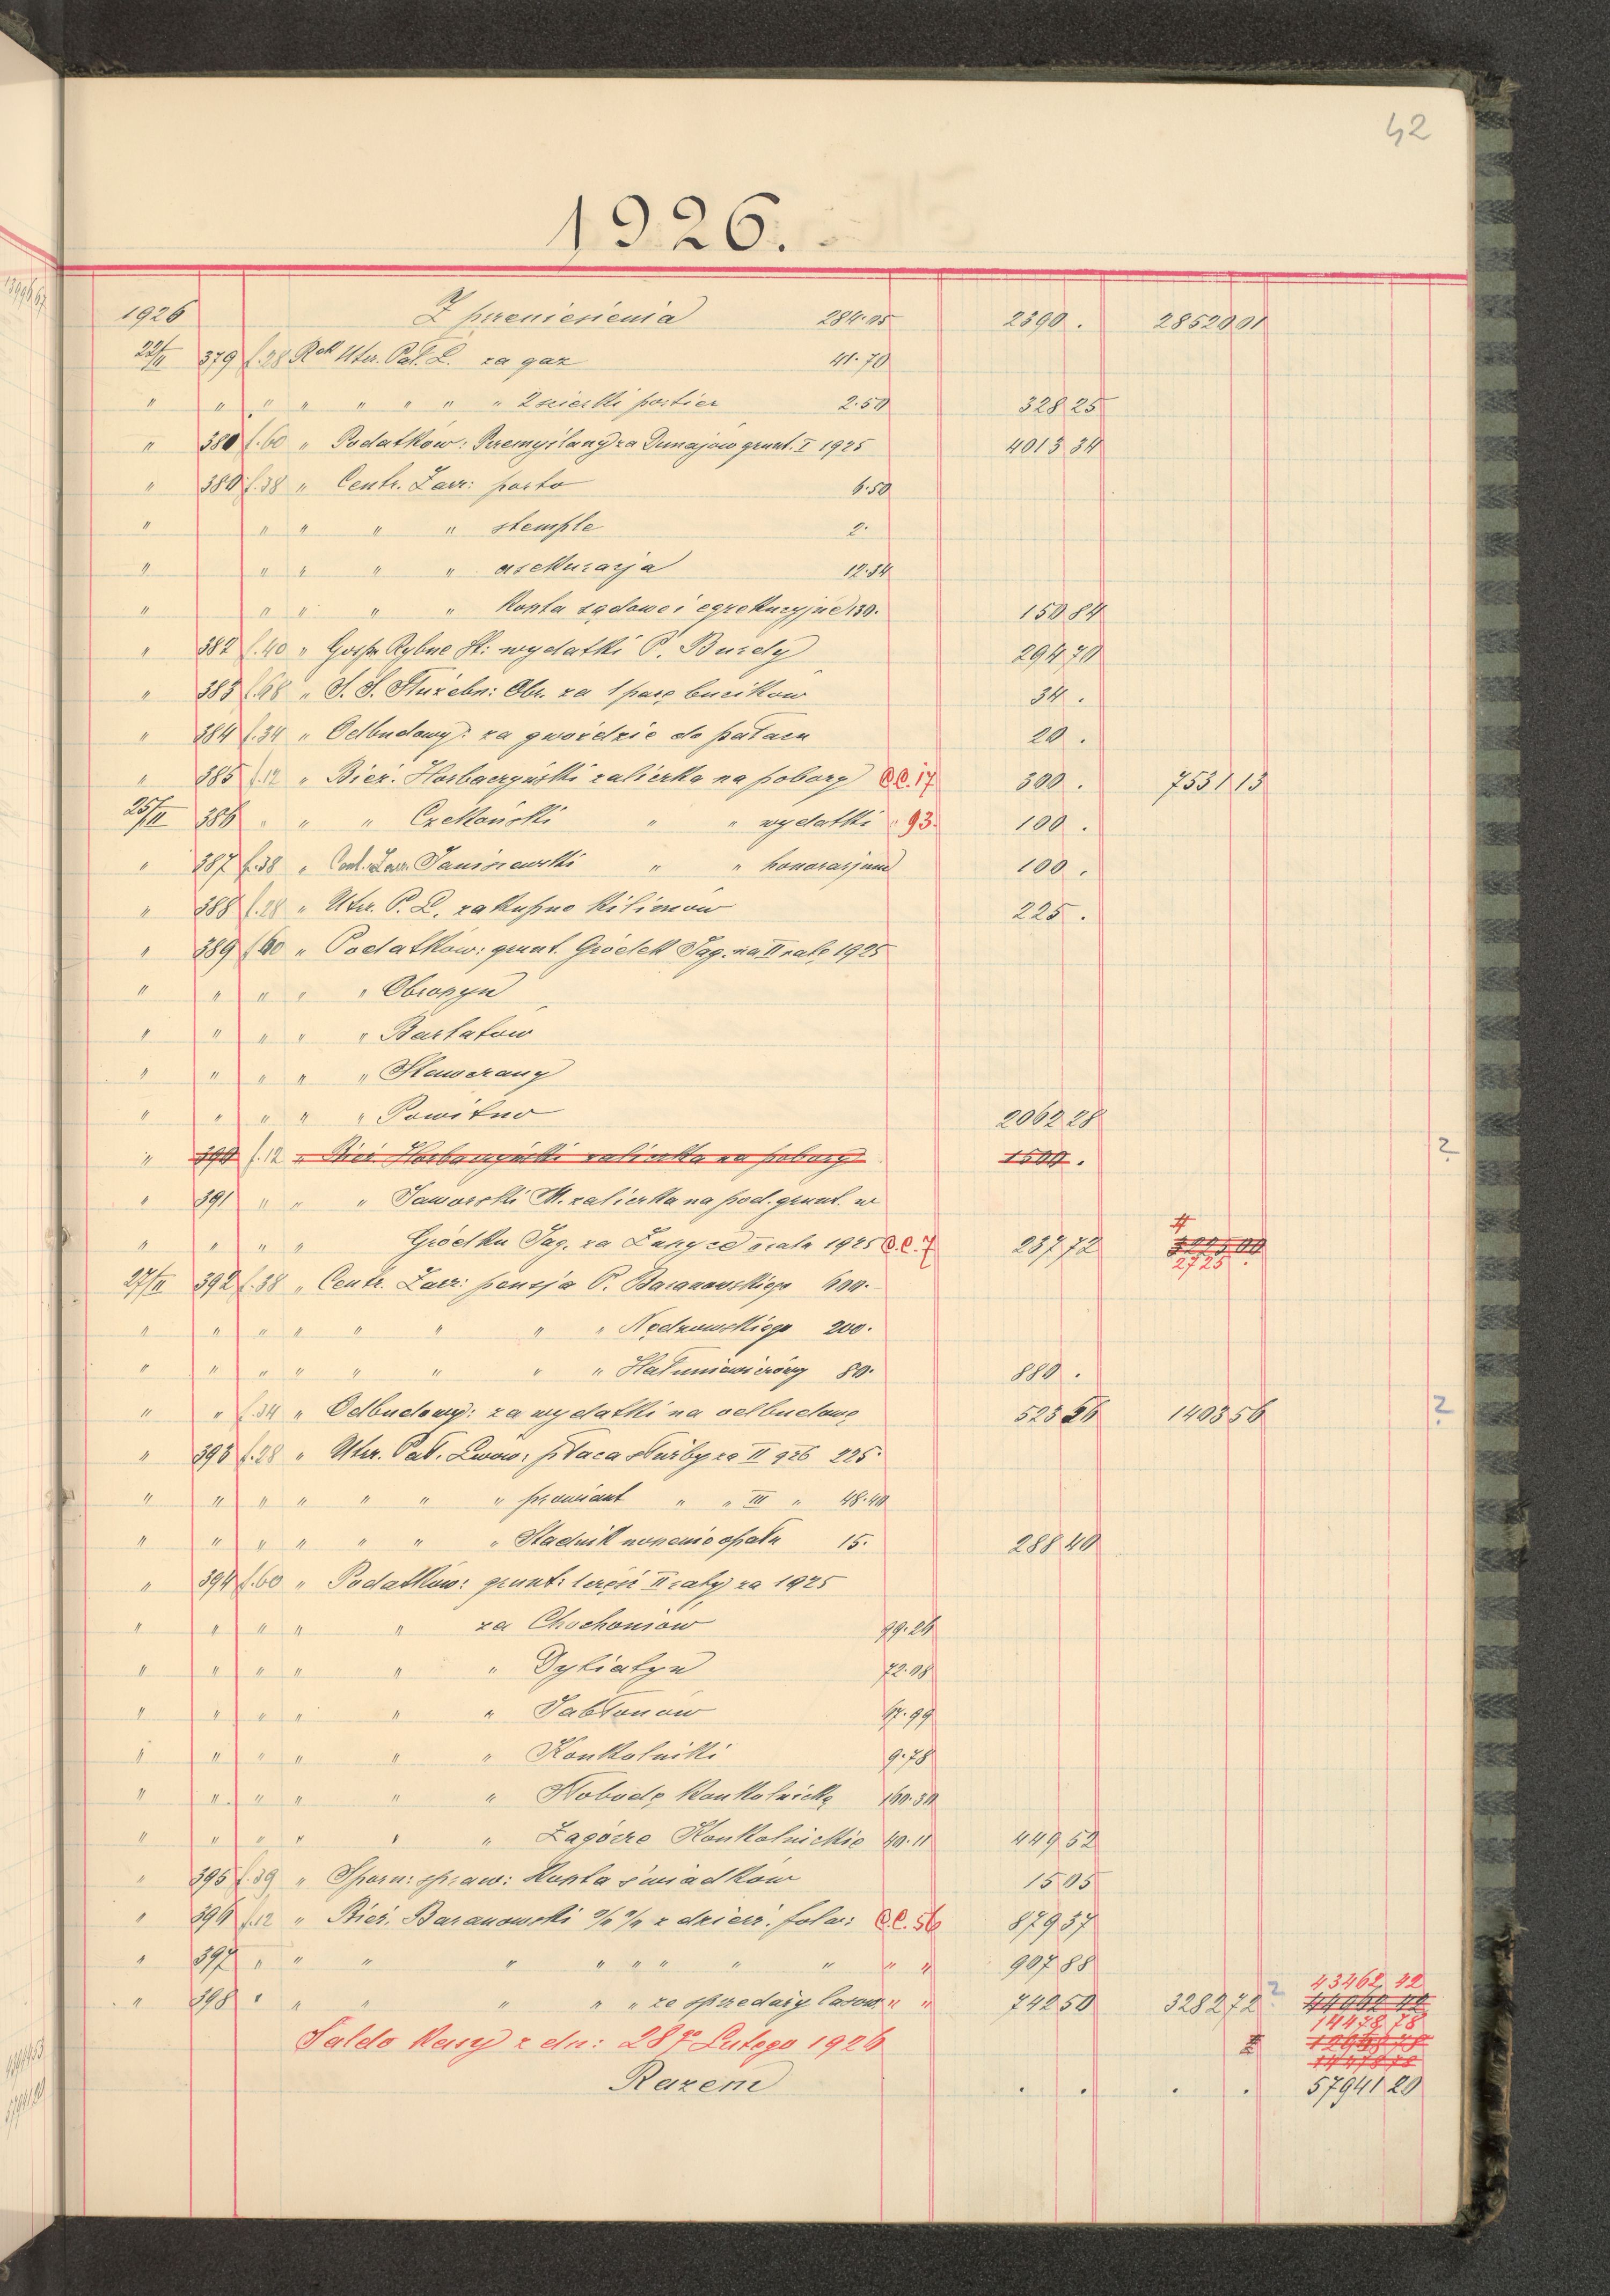 42
1926.
1926 Z przeniesienia 284·05 2390 . 28520 01
22/II 379 f.28 Rek Utrz. Pał. L. za gaz 41·70
" " " " " " " " Zsierski portier 2·50 328 25
" 380 f.60 " Podatków: Przemyślany za Dunajów grunt. I 1925 4013 34
" 380 f.38 " Centr. Zarz: porto 6·50
" " " " " stemple 2·
" " " " " asekuracja 12·34
" " " " " koszta sądowe i egzekucyjne 130· 150 84
" 382 f.40 " Gosp. Rybne St: wydatki P. Burdy 294 70
" 383 f.68 " S. S. Służebn: Obr. za 1 parę bucików 34 .
" 384 f.34 " Odbudowy: za gwoździe do pałacu 20 .
" 385 f.12 " Bież. Horbaczyński zaliczka na pobory C.C. 17 300 . 7531 13
25/II 386 " " " Czekoński " " wydatki " 93. 100 .
" 387 f.38 " Cent. Zarz. Janiszewski " " honorarjum 100 .
" 388 f.28 " Utrz. P. L. zakupno kilimów 225 .
" 389 f.60 " Podatków: grunt. Gródek Jag. za II ratę 1925
" " " " " Obroszyn
" " " " " Bartatów
" " " " " Stawczany
" " " " " Powitno 2062 28
" 390 f.12 " Bież. Horbaczyński zaliczka na pobory 1500 . ?
" 391 " " " Jaworski M. zaliczka na pod. grunt. w
" " " " Gródku Jag. za Zuszyce II rata 1925 C.C. 7 237 72 2725 .
27/II 392 f.38 " Centr. Zarz: pensja P. Baranowskiego 600·
" " " " " " " " Nędzowskiego 200·
" " " " " " " " Hałuniewiczówny 80· 880 .
" " f.34 " Odbudowy: za wydatki na odbudowę 523 56 1403 56 ?
" 393 f.28 " Utrz. Pał. Lwów: płaca służby za II 926 225·
" " " " " " " prowiant " " III " 48·40
" " " " " " " Stadnik noszenie opału 15· 288 40
" 394 f.60 " Podatków: grunt: część II raty za 1925
" " " " " za Chochoniów 99·26
" " " " " " Dytiatyn 72·08
" " " " " " Jabłonów 67·99
" " " " " " Konkolniki 9·78
" " " " " " Słobodę Konkolnicką 160·30
" " " " " " Zagórze Konkolnickie 40·11 449 52
" 395 f.39 " Sporn: spraw: koszta świadków 15 05
" 396 f.12 " Bież. Baranowski % % z dzierż. folw: C.C. 56 879 37
" 397 " " " " " " " " " " " 907 88
" 398 " " " " " " ze sprzedaży lasow " " 742 50 3282 72 ? 43462 42
44062 42
Saldo kasy z dn: 28go Lutego 1926 14478 78
14478 78
Razem . . . . 57941 20